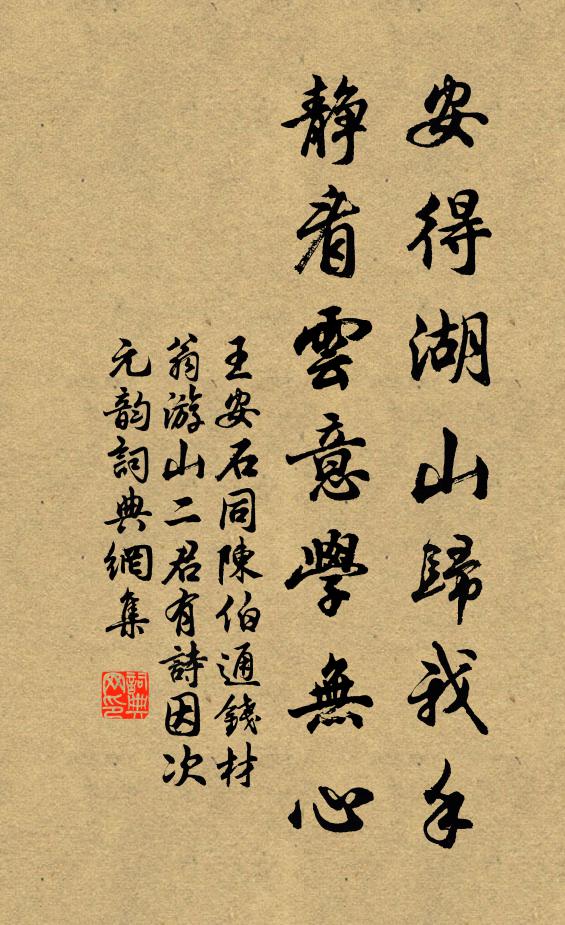 安得湖山歸我手
靜看雲意學無心
王安石同陳伯通錢材
翁游山二君有詩因次
元韵詞典網集
詞典网印